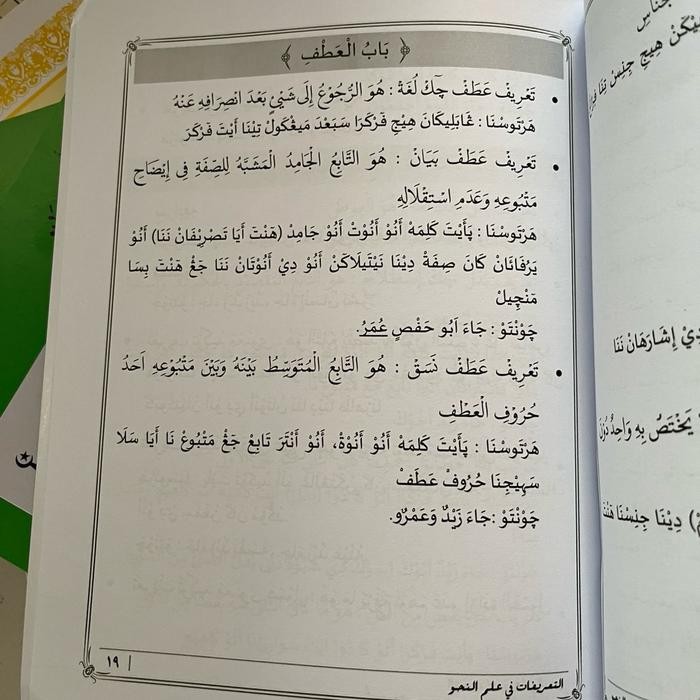 ﴿ بَابُ الْعَطْفِ ﴾
• تَعْرِيفْ عَطَفْ چٓكْ لُغَةْ : هُوَ الرُّجُوْعُ إِلَى شَيْئٍ بَعْدَ انْصِرَافِهِ عَنْهُ
هَرْتَوسْنَا : ڠَابَلِيكَانْ هِيجِ فَرْكَرَا سَبَعْدَ مَيڠْكَولْ تِيْنَا أَيْتْ فَرْكَرَ
• تَعْرِيفْ عَطَفْ بَيَانْ : هُوَ التَّابِعُ الْجَامِدُ الْمُشَبَّهُ لِلصِّفَةِ فِى إِيْضَاحِ
مَتْبُوعِهِ وَعَدَمِ اسْتِقْلَالِهِ
هَرْتَوسْنَا : پَأَيْتَ كَلِمَهْ أَنُوْ أَنُوْتْ أَنُوْ جَامِدْ (هَنْتَ أَيَا تَصْرِيْفَانْ نَنَا) أَنُوْ
يَرْفَاتَانْ كَانَ صِفَةْ دِيْنَا نَيْتَيلَاكَنْ أَنُوْ دِيْ أَنُوْتَانْ نَنَا جَڠْ هَنْتَ بِسَا
مَنْچِيلْ
چَوْنْتَوْ : جَاءَ اَبُو حَفْصٍ عُمَرُ.
• تَعْرِيفْ عَطَفْ نَسَقْ : هُوَ التَّابِعُ الْمُتَوَسِّطُ بَيْنَهُ وَبَيْنَ مَتْبُوْعِهِ اَحَدُ
حُرُوْفِ الْعَطْفِ
هَرْتَوسْنَا : پَأَيْتَ كَلِمَهْ أَنُوْ أَنُوْةْ، أَنُوْ أَنْتَرَ تَابِعْ جَڠْ مَتْبُوعْ نَا أَيَا سَلَا
سَهِيْجِنَا حُرُوفْ عَطَفْ
چَوْنْتَوْ :جَاءَ زَيْدٌ وَعَمْرٌو.
١٩ |
التعريفات في علم النحو
دِيْ إِشَارَهَانْ نَنَا
يَخْتَصُّ بِهِ وَاحِدٌ
دِيْنَا جِنِسْنَا